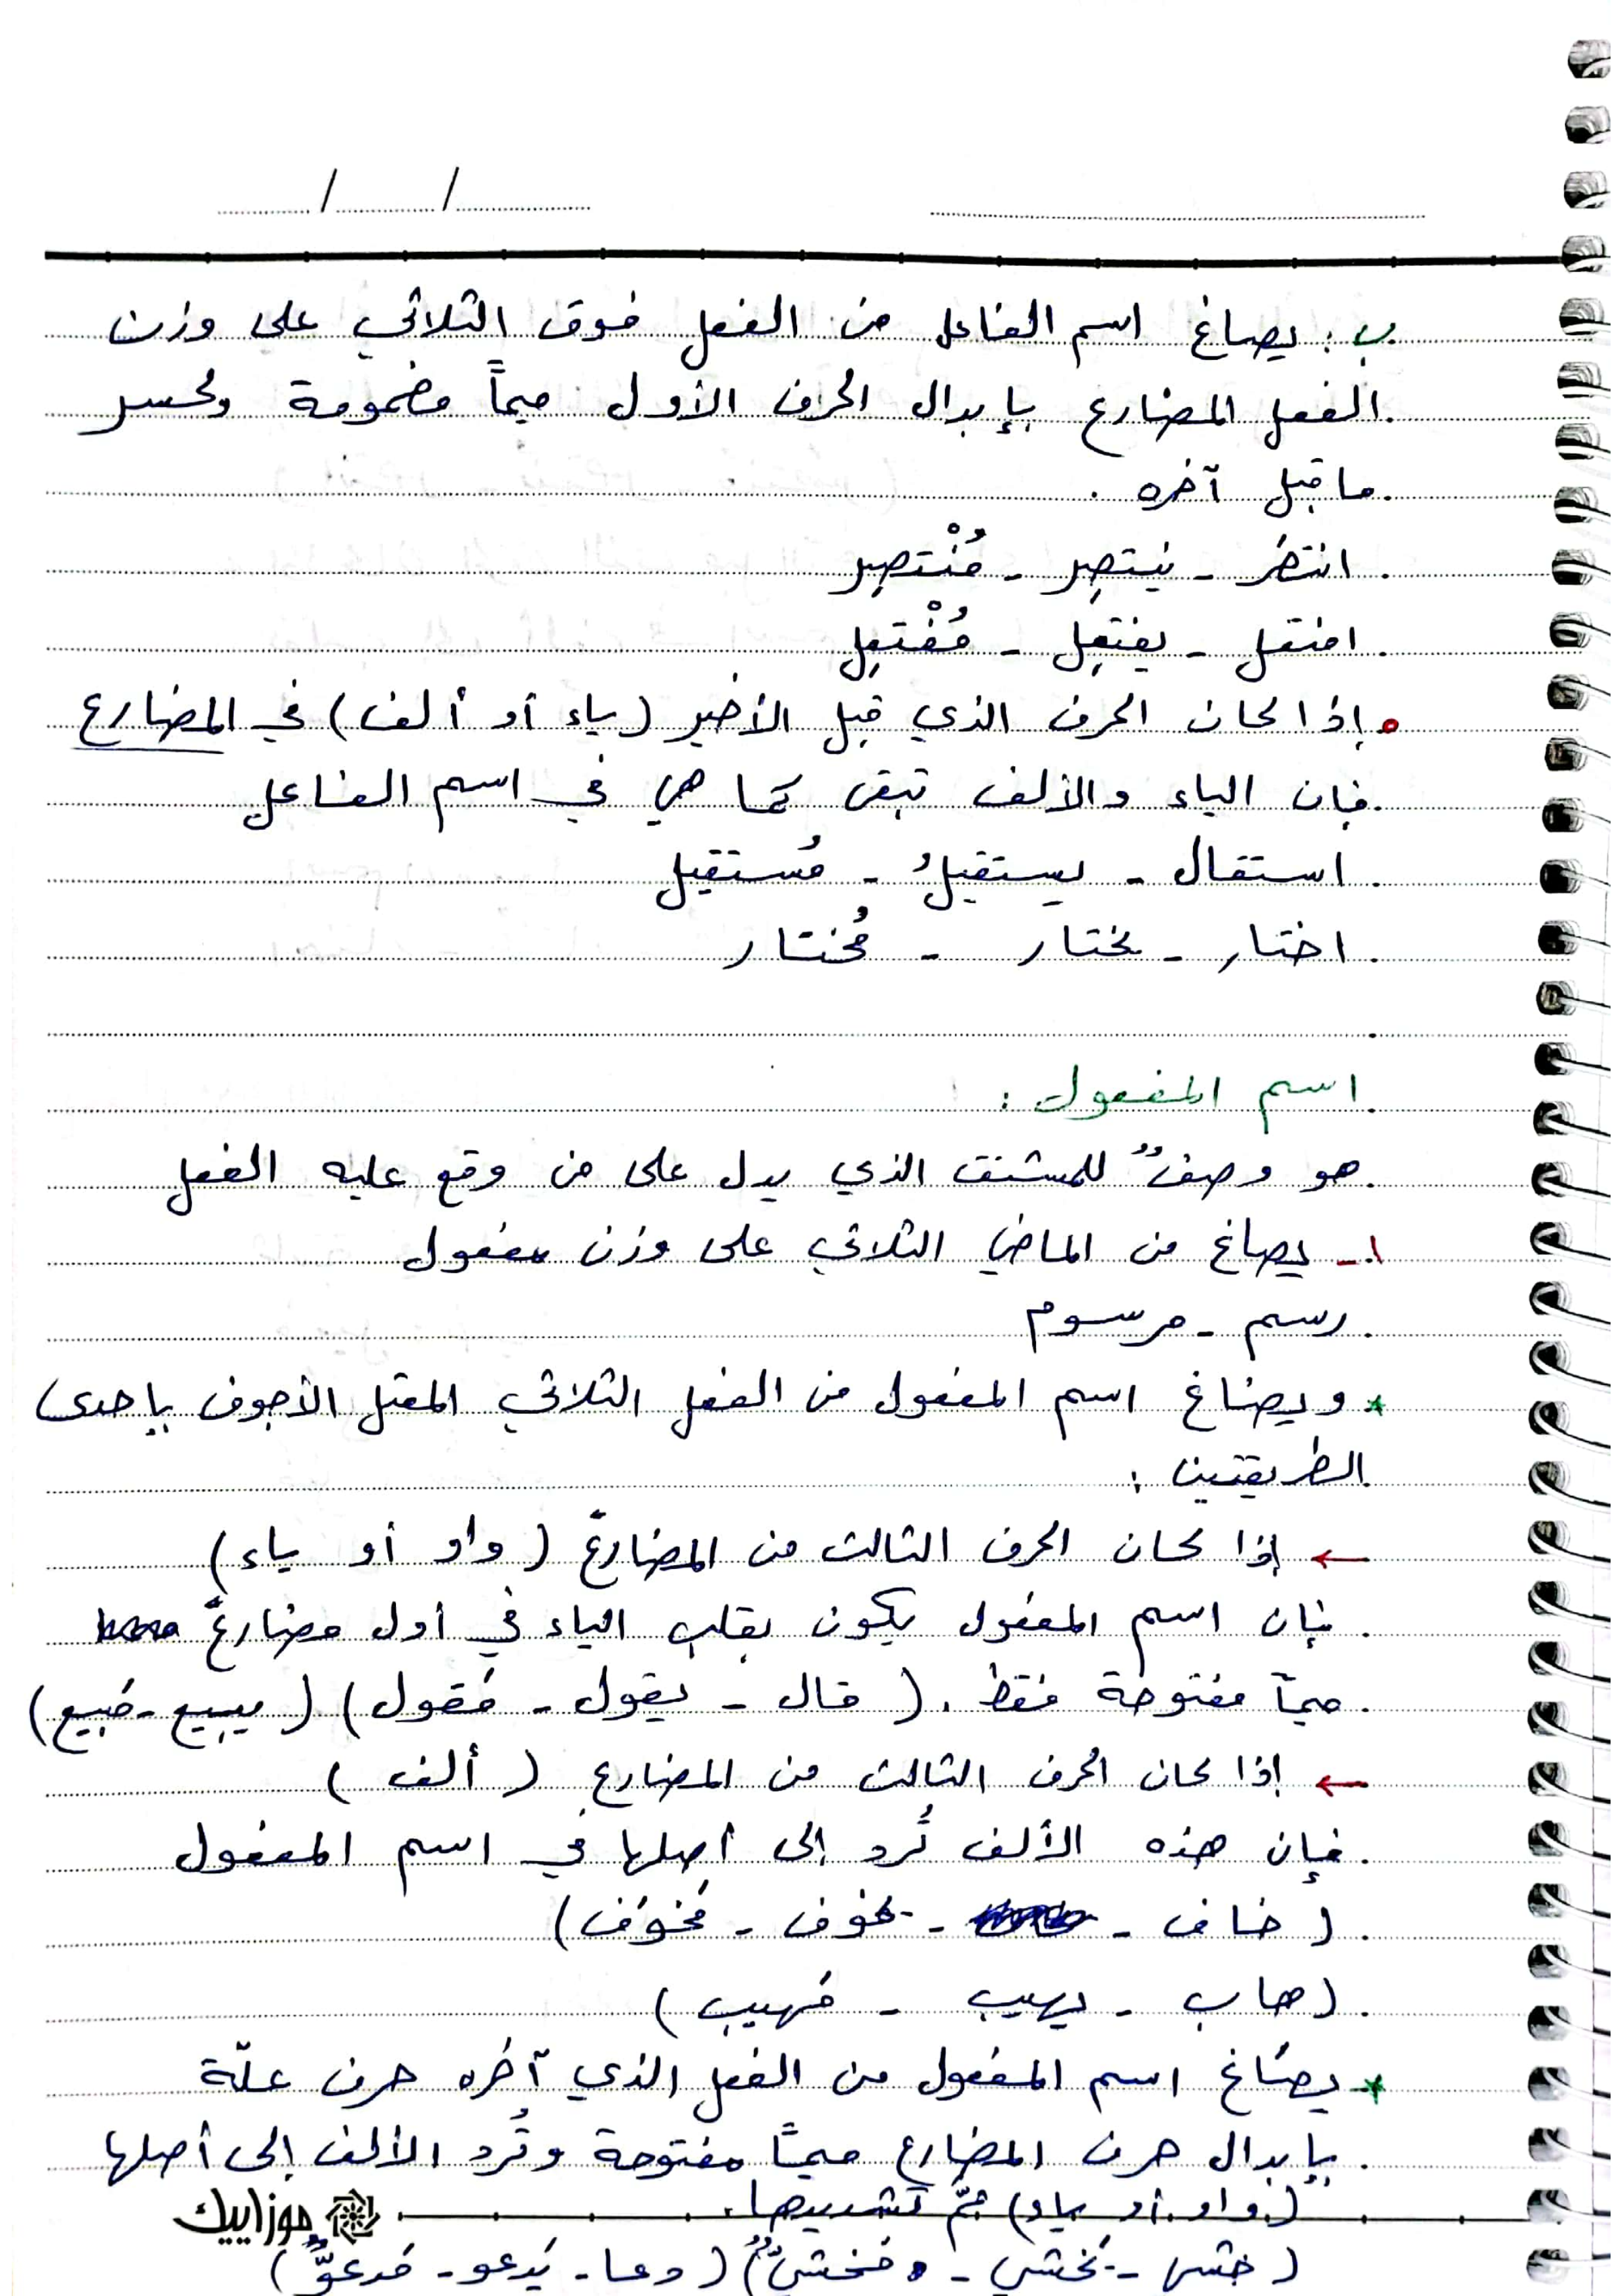 / /
ب : يصاغ اسم الفاعل من الفعل فوق الثلاثي على وزن
الفعل المضارع بإبدال الحرف الأول ميماً مضمومة وكسر
ما قبل آخره .
انتصر - ينتصِر - مُنْتصِر
افتعل - يفتعِل - مُفْتعِل
• إذا كان الحرف الذي قبل الأخير (ياء أو ألف) في المضارع
فإن الياء والألف تبقى كما هي في اسم الفاعل
استقال - يستقيلُ - مُستقيل
اختار - يختار - مُختار
اسم المفعول :
هو وصفٌ للمشتق الذي يدل على من وقع عليه الفعل
١- يصاغ من الماضي الثلاثي على وزن مفعول
رسم - مرسوم
* ويصاغ اسم المفعول من الفعل الثلاثي المعتل الأجوف بإحدى
الطريقتين :
← إذا كان الحرف الثالث من المضارع (واو أو ياء)
فإن اسم المفعول يكون بقلب الياء في أول مضارع
ميماً مفتوحة فقط . (قال - يقول - مَقول) (يبيع - مَبيع)
← إذا كان الحرف الثالث من المضارع (ألف)
فإن هذه الألف تُرد إلى أصلها في اسم المفعول
(خاف - يخوف - مَخوف)
(هاب - يهيب - مَهيب)
* يصاغ اسم المفعول من الفعل الذي آخره حرف علّة
بإبدال حرف المضارع ميماً مفتوحة وتُرد الألف إلى أصلها
(واو أو ياء) ثمّ تشديدها .
موزاييك
(خشي - يَخشى - مَخشيٌّ) (دعا - يَدعو - مَدعوٌّ)